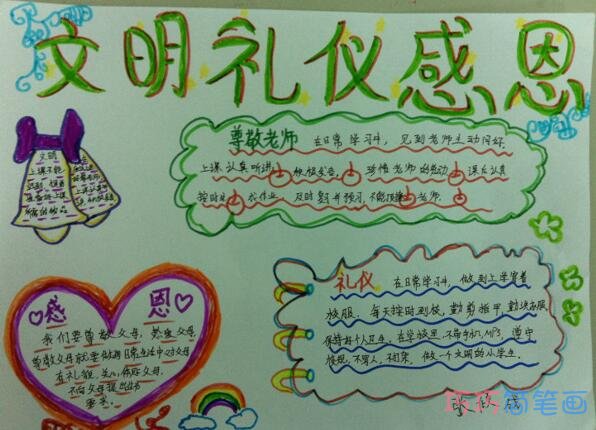 文明礼仪感恩
尊敬老师 在日常学习中，见到老师主动问好，
上课认真听讲，积极发言。珍惜老师的劳动 课后认真
按时 作业 及时复习书预习，不能顶撞老师。
文明
上课不能
礼仪 在日常学习中，做到上学穿着
校服。每天按时到校，勤剪指甲，勤洗衣服，
保持好个人卫生。在学校里，不带手机、MP3，遵守
校规，不骂人，不打架，做一个文明的小学生。
感恩
我们要尊敬父母，爱戴父母
尊敬父母就要做到日常生活中对父母
有礼貌，关心、体贴父母，
不向父母提出过分
要求。
巧巧简笔画